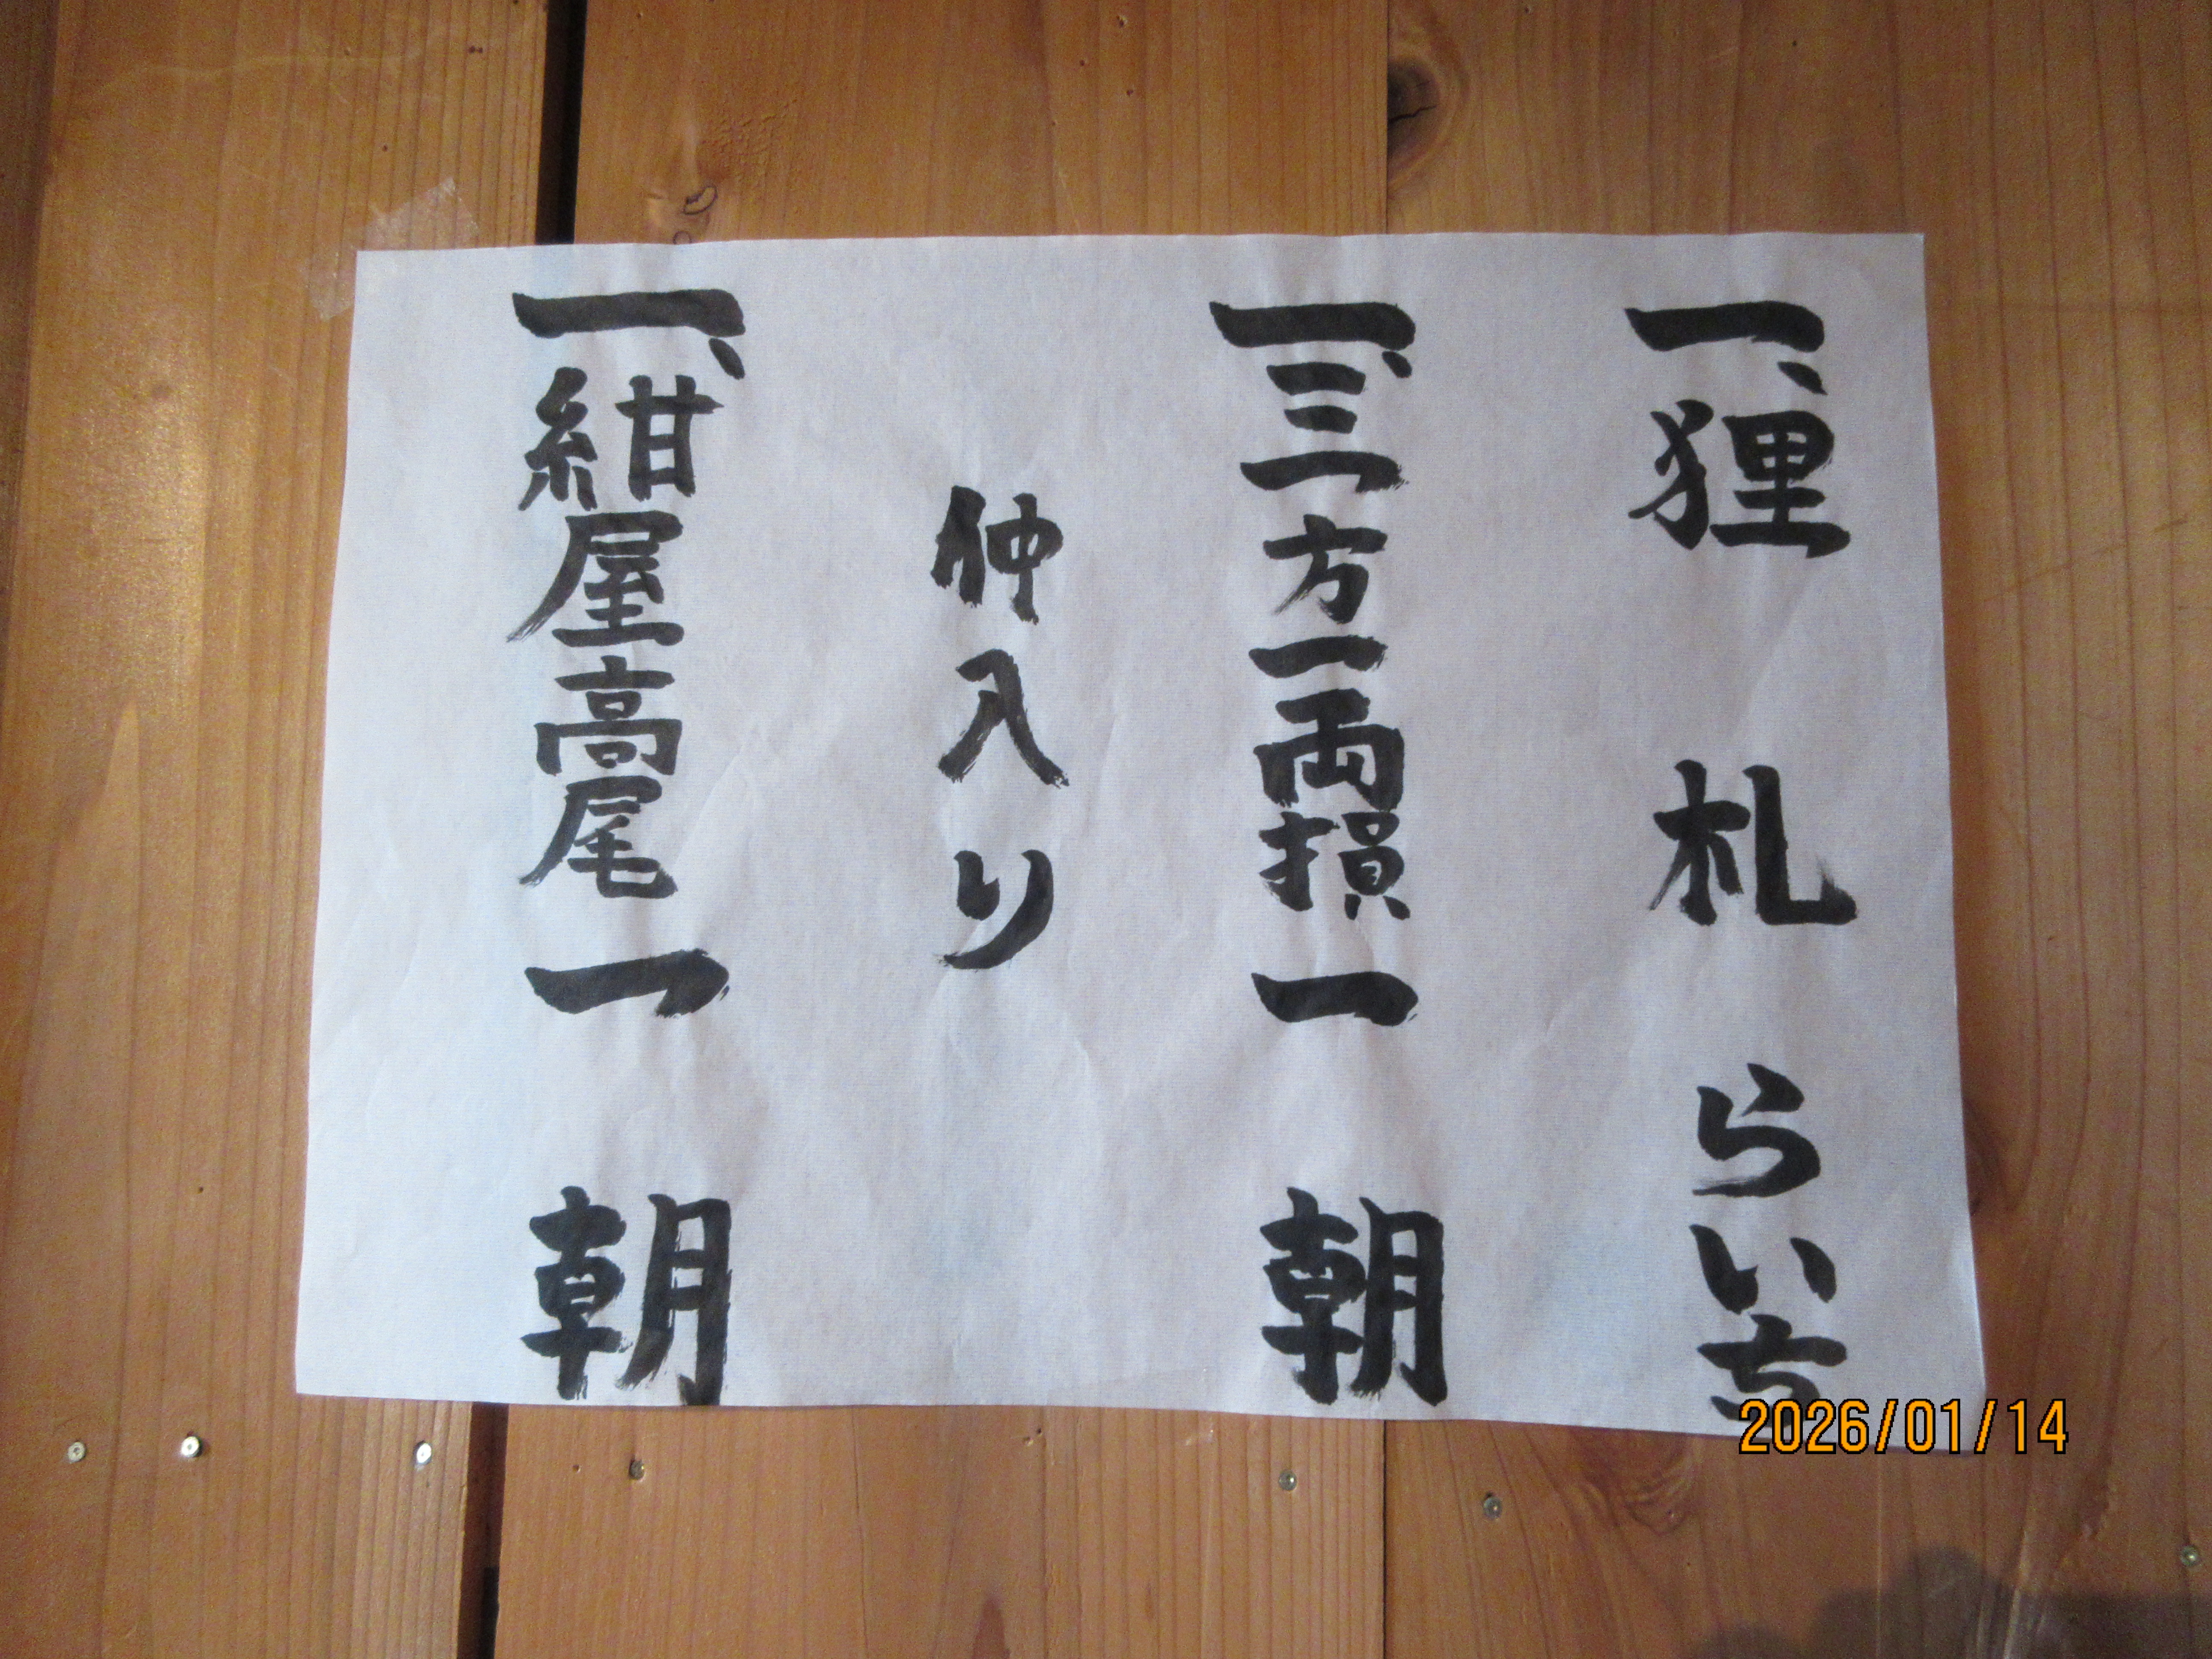 一、狸札 らいち
一、三方一両損 一朝
仲入り
一、紺屋高尾 一朝
2026/01/14